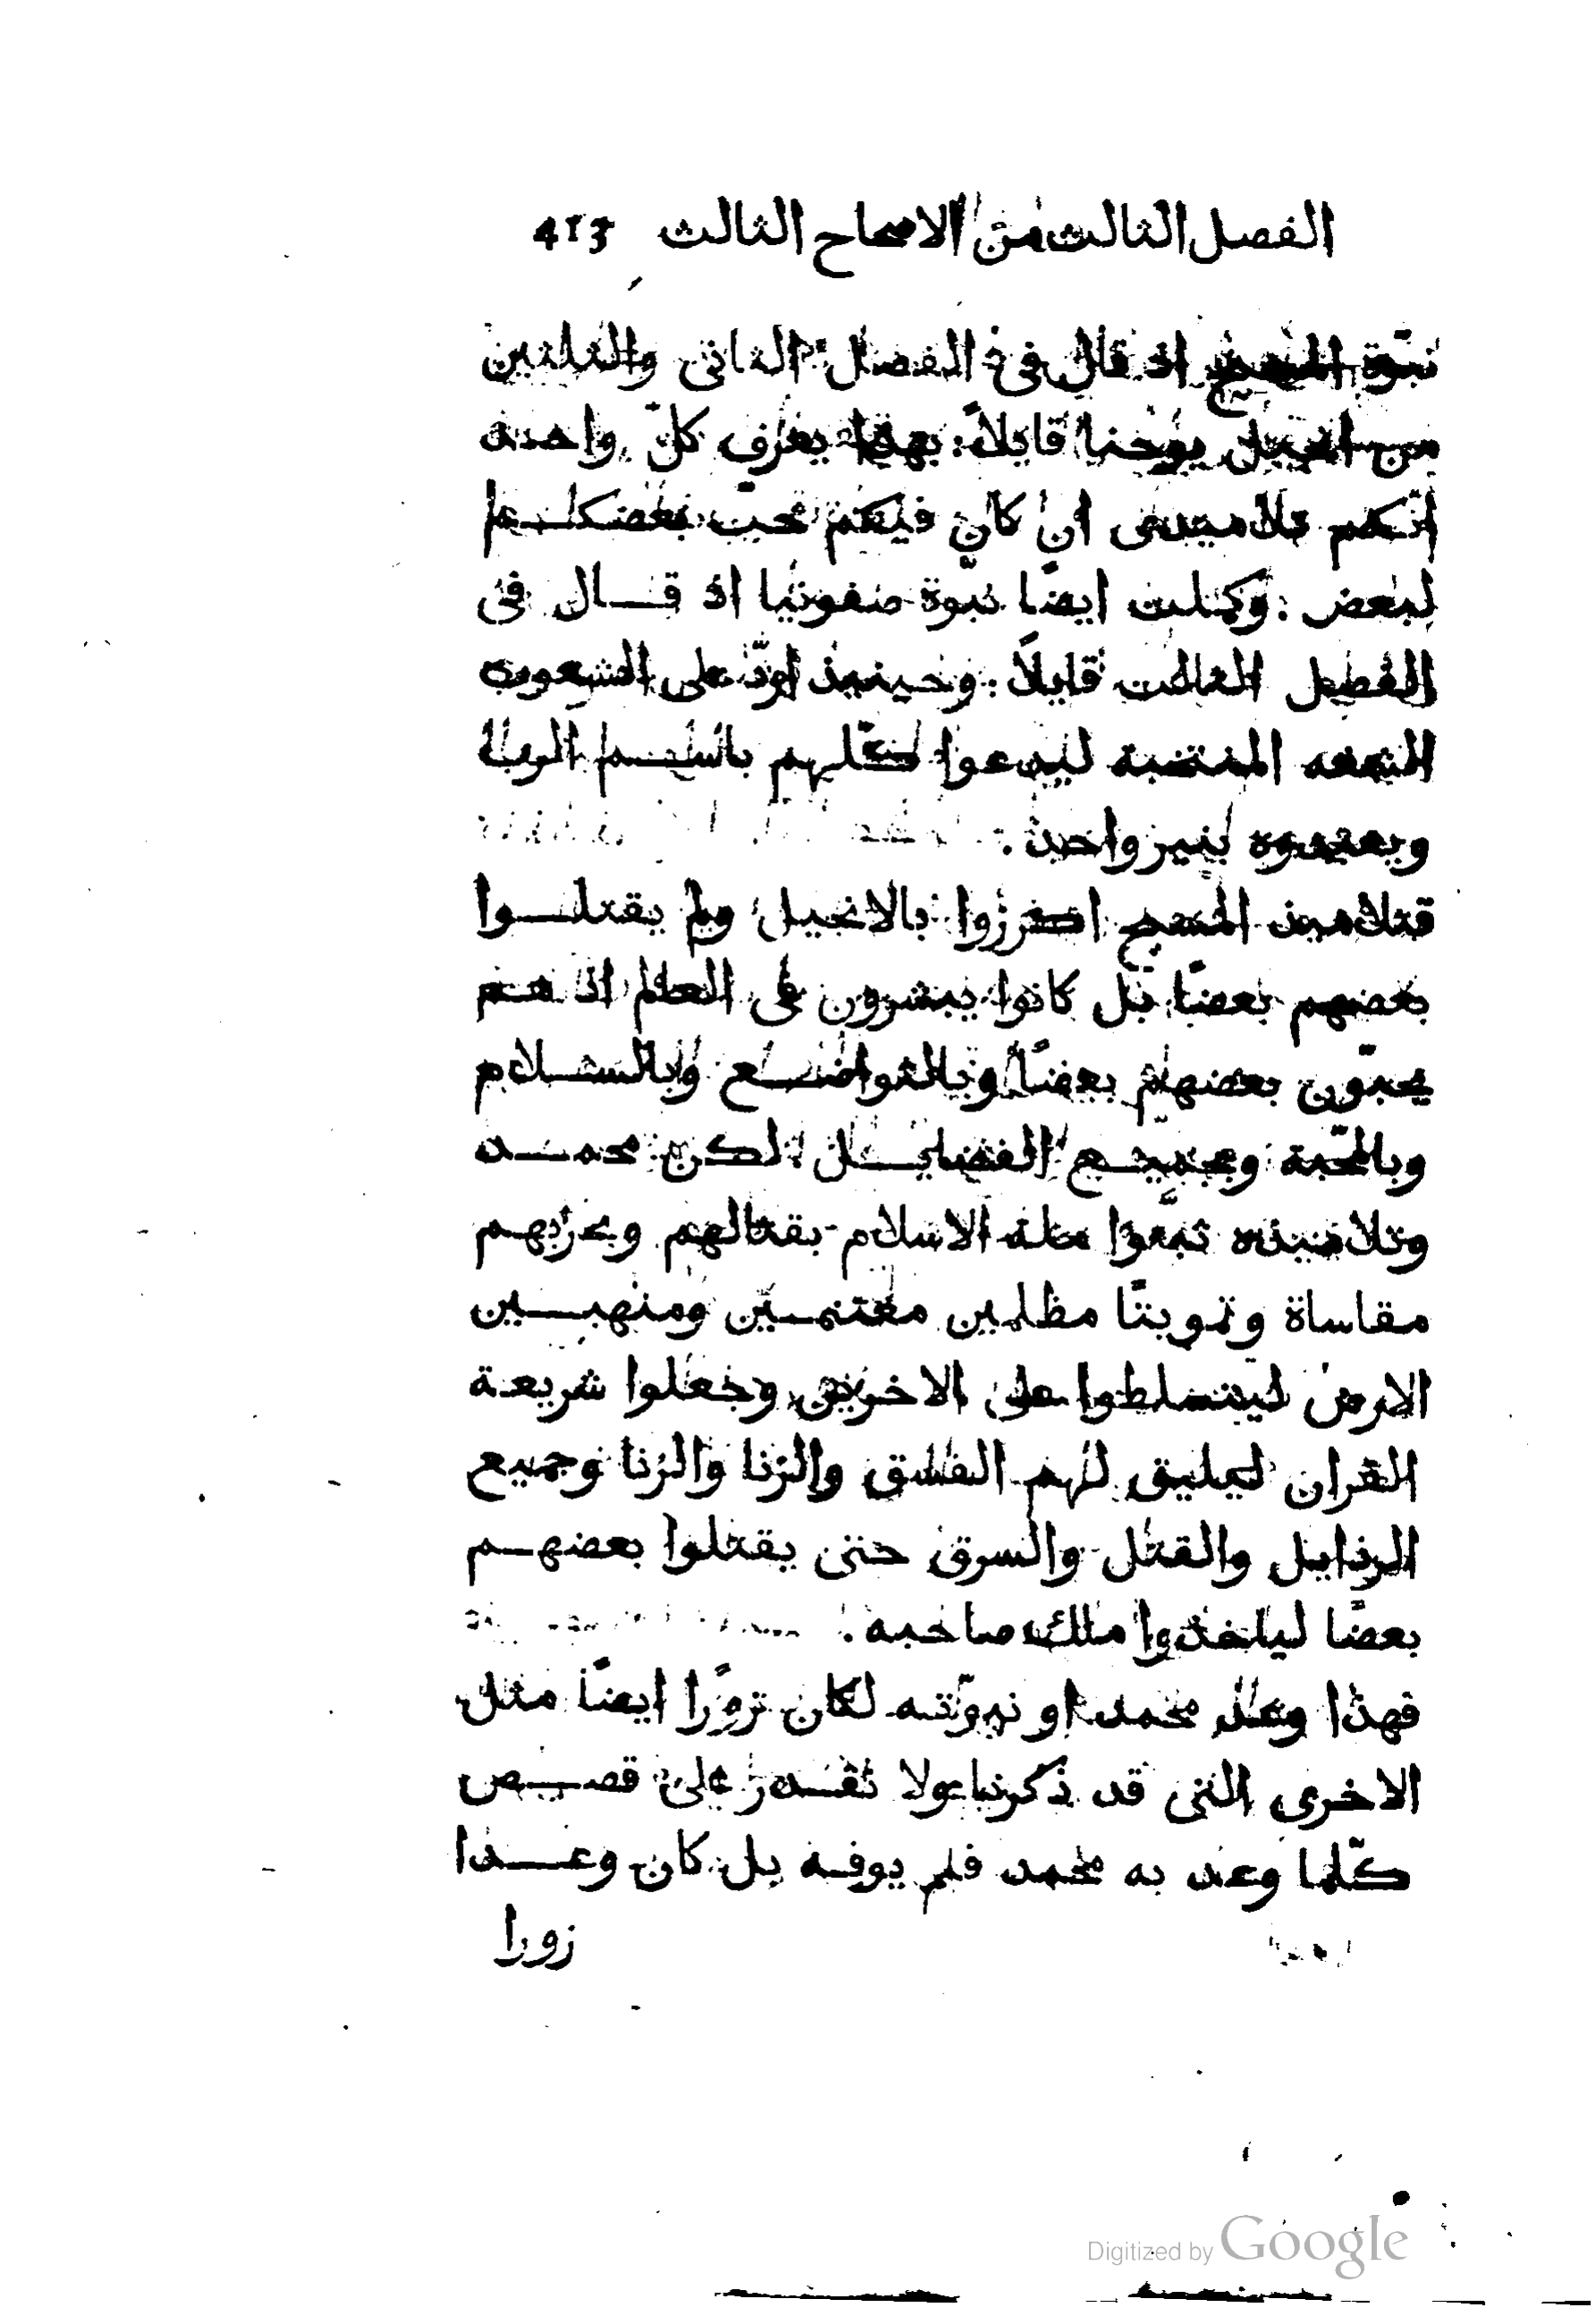 الفصل الثالث من الاصحاح الثالث 413
نبوّة المسيح اذ قال فى الفصل الثانى والثلثين
من انجيل يوحنا قايلاً: بهذا يعرف كلّ واحد
انكم تلاميذى ان كان فيكم محبّ بعضكم
لبعض: وكملت ايضًا نبوّة صفونيا اذ قال فى
الفصل الثالث قايلاً: وحينيذ اردّ على الشعوب
المنتخبة ليدعوا كلّهم باسم الربّ
ويعبدوه بنير واحد.
فتلاميذ المسيح اكرزوا بالانجيل ولم يقتلوا
بعضهم بعضًا بل كانوا يبشرون فى العالم اذ هم
يحبّون بعضهم بعضًا وبالتواضع وبالسلام
وبالمحبّة وبجميع الفضايل لكن محمد
وتلاميذه تبّعوا ملة الاسلام بقتالهم وبحربهم
مقاساة وتمويتًا مظلمين مغتنمين ومنهبين
الارض ليتسلطوا على الاخرين وجعلوا شريعة
القران ليليق لهم الفسق والزنا والزنا وجميع
الرذايل والقتل والسرق حتى يقتلوا بعضهم
بعضًا لياخذوا ملك صاحبه.
فهذا وعد محمد او نبوّته لكان زورًا ايضًا مثل
الاخرى التى قد ذكرنا ولا نقدر على قصص
كلّما وعد به محمد فلم يوفه بل كان وعدا
زورا
Digitized by Google